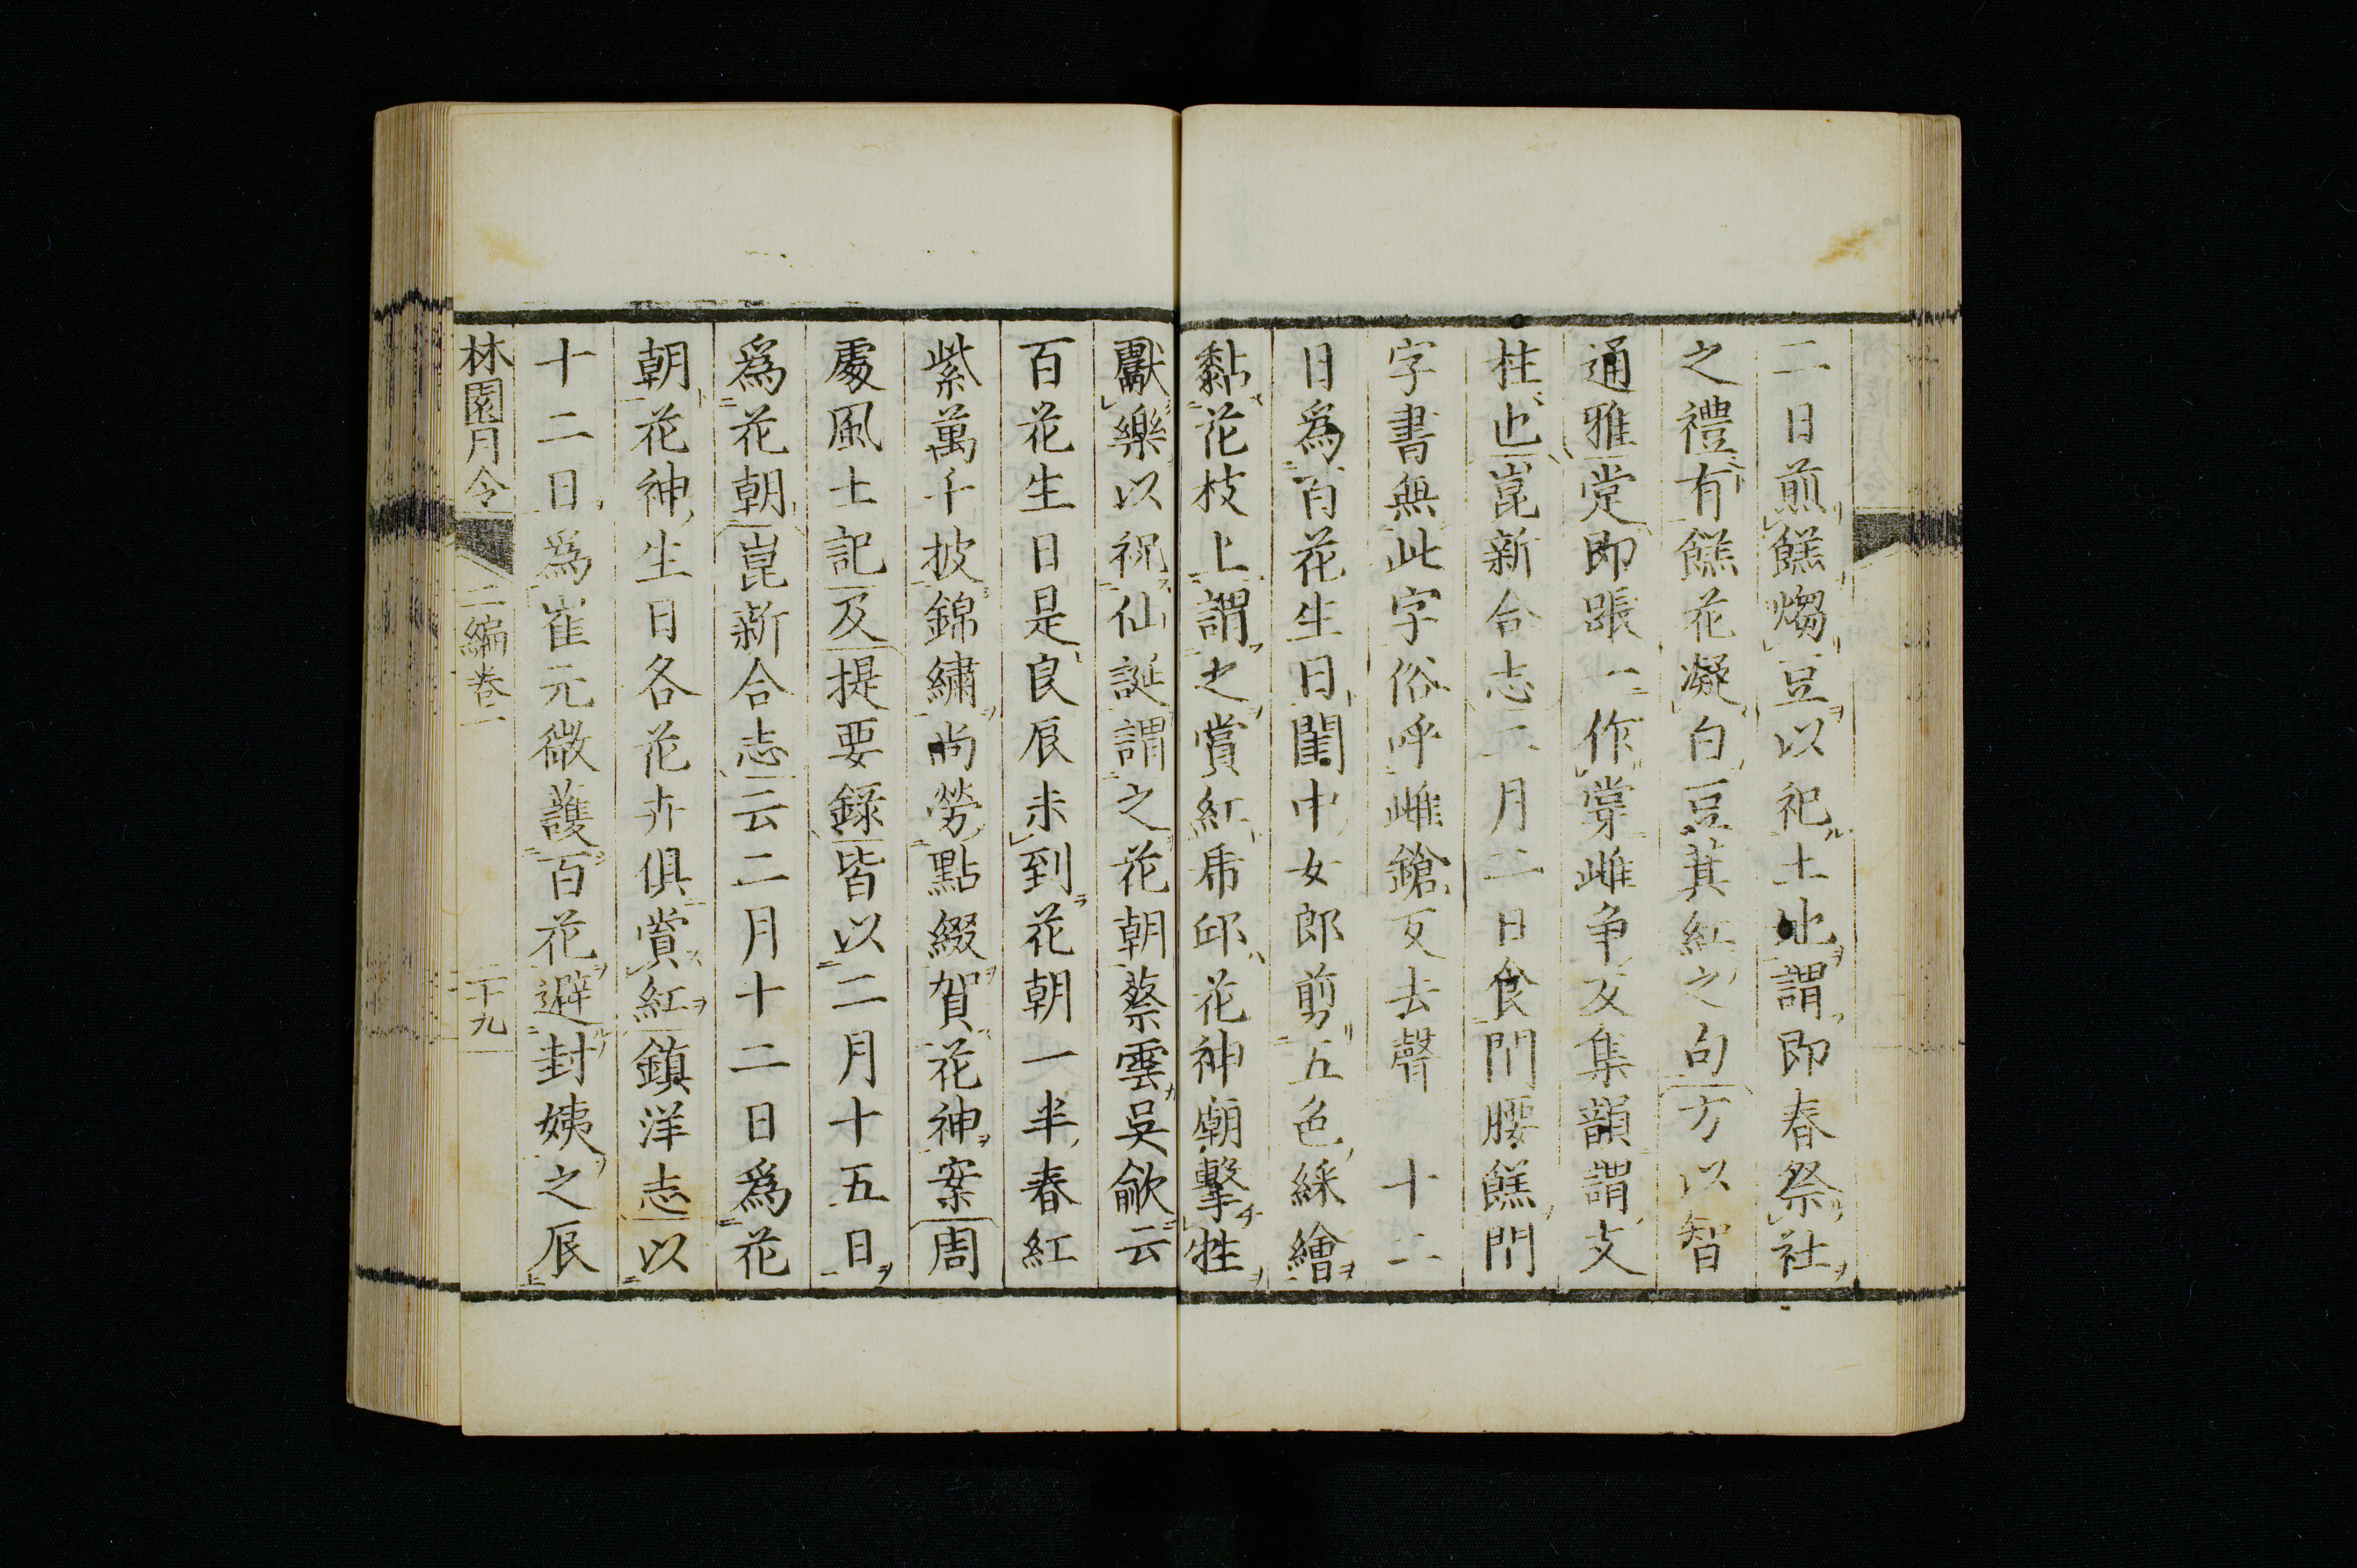 二日煎餻燭豆以祀土地謂即春祭社
之禮有餻花凝白豆萁紅之句方以智
通雅堂即䟫一作㲉雌争反集韻謂支
柱也崑新合志二月二日食門腰餻門
字書無此字俗呼雌鎗反去聲 十二
日為百花生日閨中女郎剪五色綵繒
黏花枝上謂之賞紅虎邱花神廟擊牲
獻樂以祝仙誕謂之花朝蔡雲吳歈云
百花生日是良辰未到花朝一半春紅
紫萬千披錦繡尚勞點綴賀花神案周
處風土記及提要錄皆以二月十五日
為花朝崑新合志云二月十二日為花
朝花神生日各花卉俱賞紅鎮洋志以
十二日為崔元微護百花避封姨之辰
林園月令 二編卷一 二十九